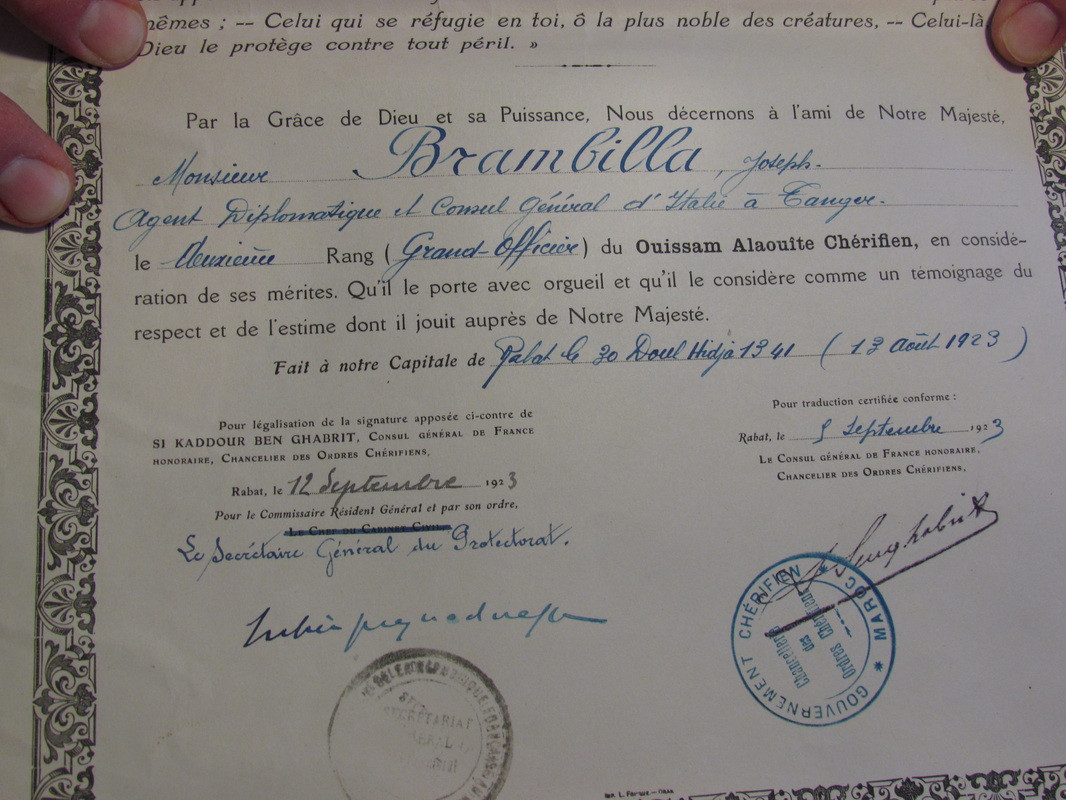 mêmes ; -- Celui qui se réfugie en toi, ô la plus noble des créatures, -- Celui-là,
Dieu le protège contre tout péril. »
Par la Grâce de Dieu et sa Puissance, Nous décernons à l'ami de Notre Majesté,
Monsieur Brambilla, Joseph.
Agent Diplomatique et Consul Général d'Italie à Tanger.
le deuxième Rang ( Grand-Officier ) du Ouissam Alaouîte Chérifien, en considé-
ration de ses mérites. Qu'il le porte avec orgueil et qu'il le considère comme un témoignage du
respect et de l'estime dont il jouit auprès de Notre Majesté.
Fait à notre Capitale de Rabat le 30 Doul Hidja 1341 ( 13 août 1923 )
Pour légalisation de la signature apposée ci-contre de
SI KADDOUR BEN GHABRIT, CONSUL GÉNÉRAL DE FRANCE
HONORAIRE, CHANCELIER DES ORDRES CHÉRIFIENS,
Rabat, le 12 Septembre 1923
Pour le Commissaire Résident Général et par son ordre,
LE CHEF DU CABINET CIVIL
Le Secrétaire Général du Protectorat.
Pour traduction certifiée conforme :
Rabat, le Septembre 1923
LE CONSUL GÉNÉRAL DE FRANCE HONORAIRE,
CHANCELIER DES ORDRES CHÉRIFIENS,
GOUVERNEMENT CHÉRIFIEN MAROC *
Chancellerie
des
Ordres Chérifiens
SECRÉTARIAT